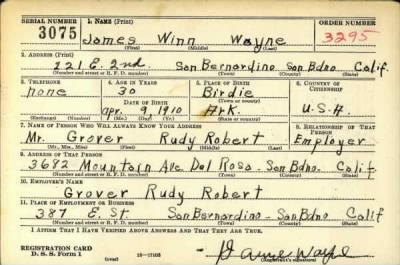 SERIAL NUMBER 1. NAME (Print) ORDER NUMBER
3075 James Winn Wayne 3295
(First) (Middle) (Last)
2. ADDRESS (Print)
221 E. 2nd. San Bernardino San Bdno. Calif.
(Number and street or R. F. D. number) (Town) (County) (State)
3. TELEPHONE 4. AGE IN YEARS 5. PLACE OF BIRTH 6. COUNTRY OF CITIZENSHIP
none 30 Birdie
DATE OF BIRTH (Town or county)
Apr. 9 1910 Ark. U.S.A.
(Exchange) (Number) (Mo.) (Day) (Yr.) (State or country)
7. NAME OF PERSON WHO WILL ALWAYS KNOW YOUR ADDRESS 8. RELATIONSHIP OF THAT PERSON
Mr. Grover Rudy Robert Employer
(Mr., Mrs., Miss) (First) (Middle) (Last)
9. ADDRESS OF THAT PERSON
3682 Mountain Ave Del Rosa San Bdno. Calif.
(Number and street or R. F. D. number) (Town) (County) (State)
10. EMPLOYER'S NAME
Grover Rudy Robert
11. PLACE OF EMPLOYMENT OR BUSINESS
387 E. St. San Bernardino San Bdno. Calif
(Number and street or R. F. D. number) (Town) (County) (State)
I AFFIRM THAT I HAVE VERIFIED ABOVE ANSWERS AND THAT THEY ARE TRUE.
REGISTRATION CARD
D. S. S. FORM 1 (over) 16-17105 Wayne
(Registrant's signature)